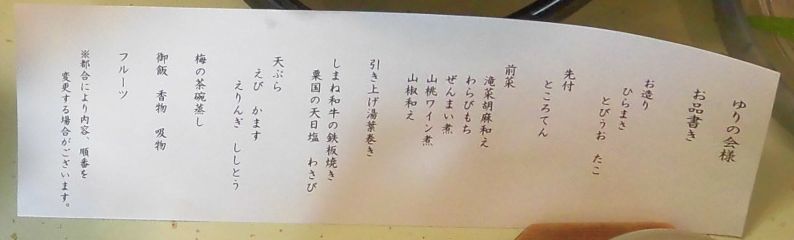 ゆりの会様
お品書き
お造り
ひらまさ
とびうお たこ
先付
ところてん
前菜
滝菜胡麻和え
わらびもち
ぜんまい煮
山桃ワイン煮
山椒和え
引き上げ湯葉巻き
しまね和牛の鉄板焼き
粟国の天日塩 わさび
天ぷら
えび かます
えりんぎ ししとう
梅の茶碗蒸し
御飯 香物 吸物
フルーツ
※都合により内容、順番を
変更する場合がございます。